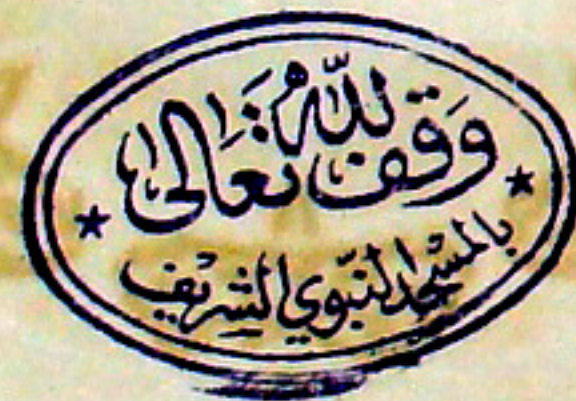 وَقف لِلّٰه تَعَالى
بالمسْجد النبّوي الشِريْف